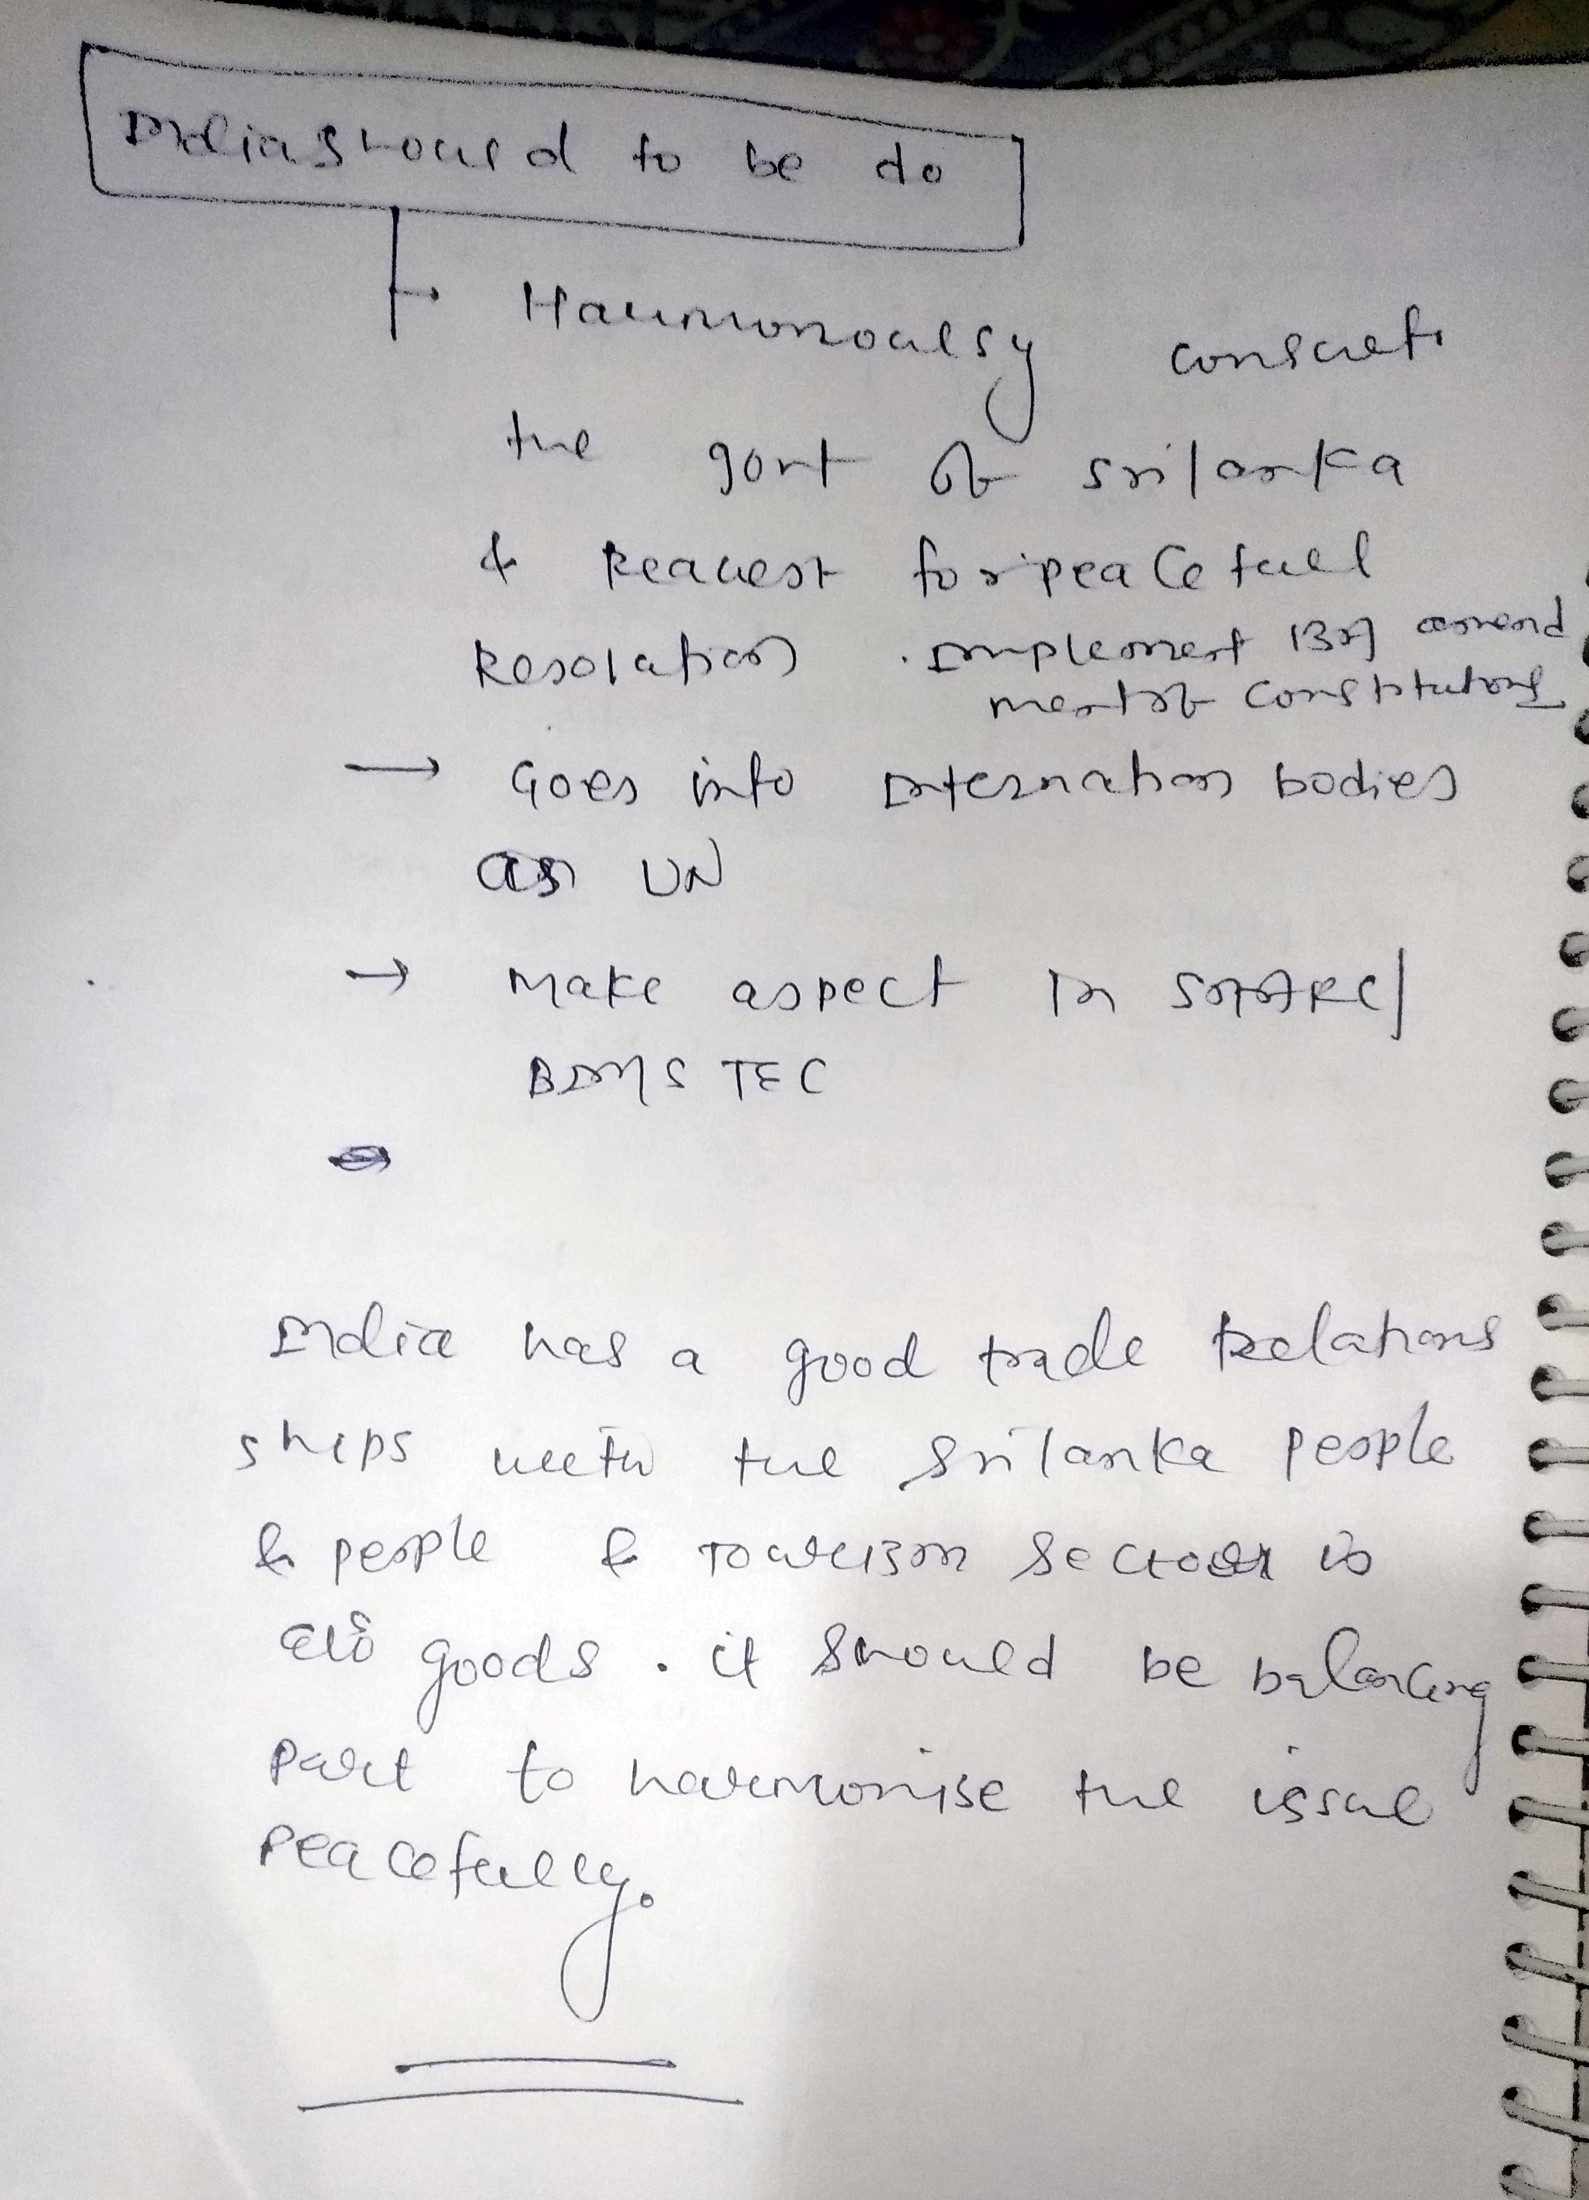 India should to be do
→ Harmonoulsy
the govt of srilanka
& Request for peaceful
Resolation . Implement 13th amend
ment of constitutions
→ Goes into Internation bodies
as UN
→ Make aspect In SAARC/
BIMSTEC
India has a good trade Relations
ships with the Srilanka people
& people & Tourism Sector is
also goods. it should be balancing
part to harmonise the issue
peacefully.